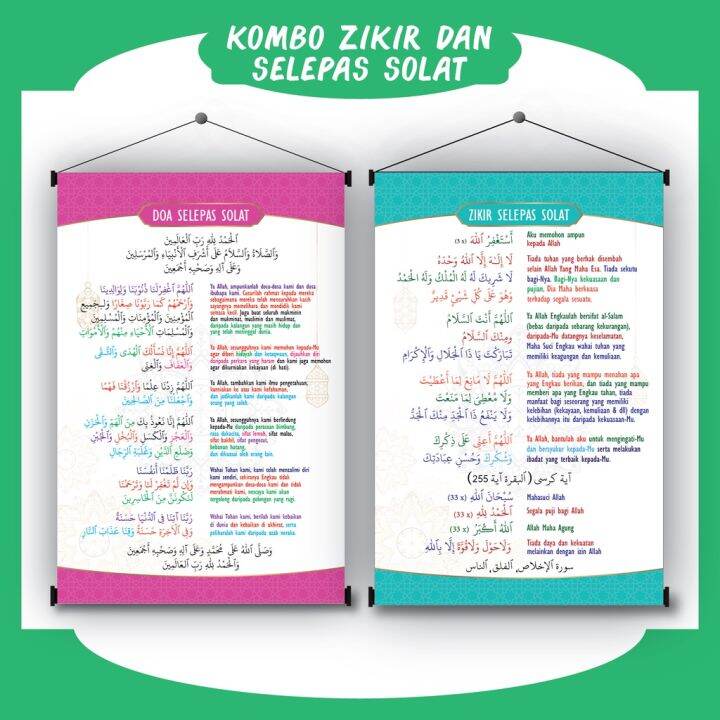 KOMBO ZIKIR DAN
SELEPAS SOLAT
DOA SELEPAS SOLAT
الْحَمْدُ لِلَّهِ رَبِّ الْعَالَمِينَ
وَالصَّلَاةُ وَالسَّلَامُ عَلَى أَشْرَفِ الْأَنْبِيَاءِ وَالْمُرْسَلِينَ
وَعَلَى آلِهِ وَصَحْبِهِ أَجْمَعِينَ
اللَّهُمَّ اغْفِرْ لَنَا ذُنُوبَنَا وَلِوَالِدِينَا
وَارْحَمْهُمْ كَمَا رَبَّوْنَا صِغَارًا وَلِجَمِيعِ
الْمُؤْمِنِينَ وَالْمُؤْمِنَاتِ وَالْمُسْلِمِينَ
وَالْمُسْلِمَاتِ الْأَحْيَاءِ مِنْهُمْ وَالْأَمْوَاتِ
Ya Allah, ampunkanlah dosa-dosa kami dan dosa
ibubapa kami. Cucurilah rahmat kepada mereka
sebagaimana mereka telah mencurahkan kasih
sayangnya memelihara dan mendidik kami
semasa kecil. Juga buat seluruh mukminin
dan mukminat, muslimin dan muslimat,
daripada kalangan yang masih hidup dan
yang telah meninggal dunia.
اللَّهُمَّ إِنَّا نَسْأَلُكَ الْهُدَى وَالتُّقَى
وَالْعَفَافَ وَالْغِنَى
Ya Allah, sesungguhnya kami memohon kepada-Mu
agar diberi hidayah dan ketaqwaan, dijauhkan diri
daripada perkara yang haram dan kami juga memohon
agar dikurniakan kekayaan (di hati).
اللَّهُمَّ زِدْنَا عِلْمًا وَارْزُقْنَا فَهْمًا
وَاجْعَلْنَا مِنَ الصَّالِحِينَ
Ya Allah, tambahkanlah kami ilmu pengetahuan,
kurniakan ke atas kami kefahaman,
dan jadikanlah kami daripada kalangan
orang yang salih.
اللَّهُمَّ إِنَّا نَعُوذُ بِكَ مِنَ الْهَمِّ وَالْحَزَنِ
وَالْعَجْزِ وَالْكَسَلِ وَالْبُخْلِ وَالْجُبْنِ
وَضَلَعِ الدَّيْنِ وَغَلَبَةِ الرِّجَالِ
Ya Allah, sesungguhnya kami berlindung
kepada-Mu daripada perasaan bimbang,
rasa dukacita, sifat lemah, sifat malas,
sifat bakhil, sifat pengecut,
bebanan hutang,
dan dikuasai oleh orang lain.
رَبَّنَا ظَلَمْنَا أَنْفُسَنَا
وَإِنْ لَمْ تَغْفِرْ لَنَا وَتَرْحَمْنَا
لَنَكُونَنَّ مِنَ الْخَاسِرِينَ
Wahai Tuhan kami, kami telah menzalimi diri
kami sendiri, sekiranya Engkau tidak
mengampunkan dosa-dosa kami dan tidak
merahmati kami, nescaya kami akan
tergolong daripada golongan yang rugi.
رَبَّنَا آتِنَا فِي الدُّنْيَا حَسَنَةً
وَفِي الْآخِرَةِ حَسَنَةً وَقِنَا عَذَابَ النَّارِ
Wahai Tuhan kami, berilah kami kebaikan
di dunia dan kebaikan di akhirat, serta
peliharalah kami daripada azab neraka.
وَصَلَّى اللَّهُ عَلَى مُحَمَّدٍ وَعَلَى آلِهِ وَصَحْبِهِ أَجْمَعِينَ
وَالْحَمْدُ لِلَّهِ رَبِّ الْعَالَمِينَ
ZIKIR SELEPAS SOLAT
أَسْتَغْفِرُ اللَّهَ (3 x)
Aku memohon ampun
kepada Allah
لَا إِلَهَ إِلَّا اللَّهُ وَحْدَهُ
لَا شَرِيكَ لَهُ لَهُ الْمُلْكُ وَلَهُ الْحَمْدُ
وَهُوَ عَلَى كُلِّ شَيْئٍ قَدِيرٌ
Tiada tuhan yang berhak disembah
selain Allah Yang Maha Esa. Tiada sekutu
bagi-Nya. Bagi-Nya kekuasaan dan
pujian. Dia Maha berkuasa
terhadap segala sesuatu.
اللَّهُمَّ أَنْتَ السَّلَامُ
وَمِنْكَ السَّلَامُ
تَبَارَكْتَ يَا ذَا الْجَلَالِ وَالْإِكْرَامِ
Ya Allah Engkaulah bersifat al-Salam
(bebas daripada sebarang kekurangan),
daripada-Mu datangnya keselamatan,
Maha Suci Engkau wahai tuhan yang
memiliki keagungan dan kemuliaan.
اللَّهُمَّ لَا مَانِعَ لِمَا أَعْطَيْتَ
وَلَا مُعْطِيَ لِمَا مَنَعْتَ
وَلَا يَنْفَعُ ذَا الْجَدِّ مِنْكَ الْجَدُّ
Ya Allah, tiada yang mampu menahan apa
yang Engkau berikan, dan tiada yang mampu
memberi apa yang Engkau tahan, tiada
manfaat bagi seseorang yang memiliki
kelebihan (kekayaan, kemuliaan & dll) dengan
kelebihannya itu daripada kekuasaan-Mu.
اللَّهُمَّ أَعِنِّي عَلَى ذِكْرِكَ
وَشُكْرِكَ وَحُسْنِ عِبَادَتِكَ
Ya Allah, bantulah aku untuk mengingati-Mu
dan bersyukur kepada-Mu serta melakukan
ibadat yang terbaik kepada-Mu.
آية كرسى (البقرة آية 255)
سُبْحَانَ اللَّهِ (33 x)
Mahasuci Allah
الْحَمْدُ لِلَّهِ (33 x)
Segala puji bagi Allah
اللَّهُ أَكْبَرُ (33 x)
Allah Maha Agung
وَلَا حَوْلَ وَلَا قُوَّةَ إِلَّا بِاللَّهِ
Tiada daya dan kekuatan
melainkan dengan izin Allah
سورة الإخلاص, الفلق, الناس